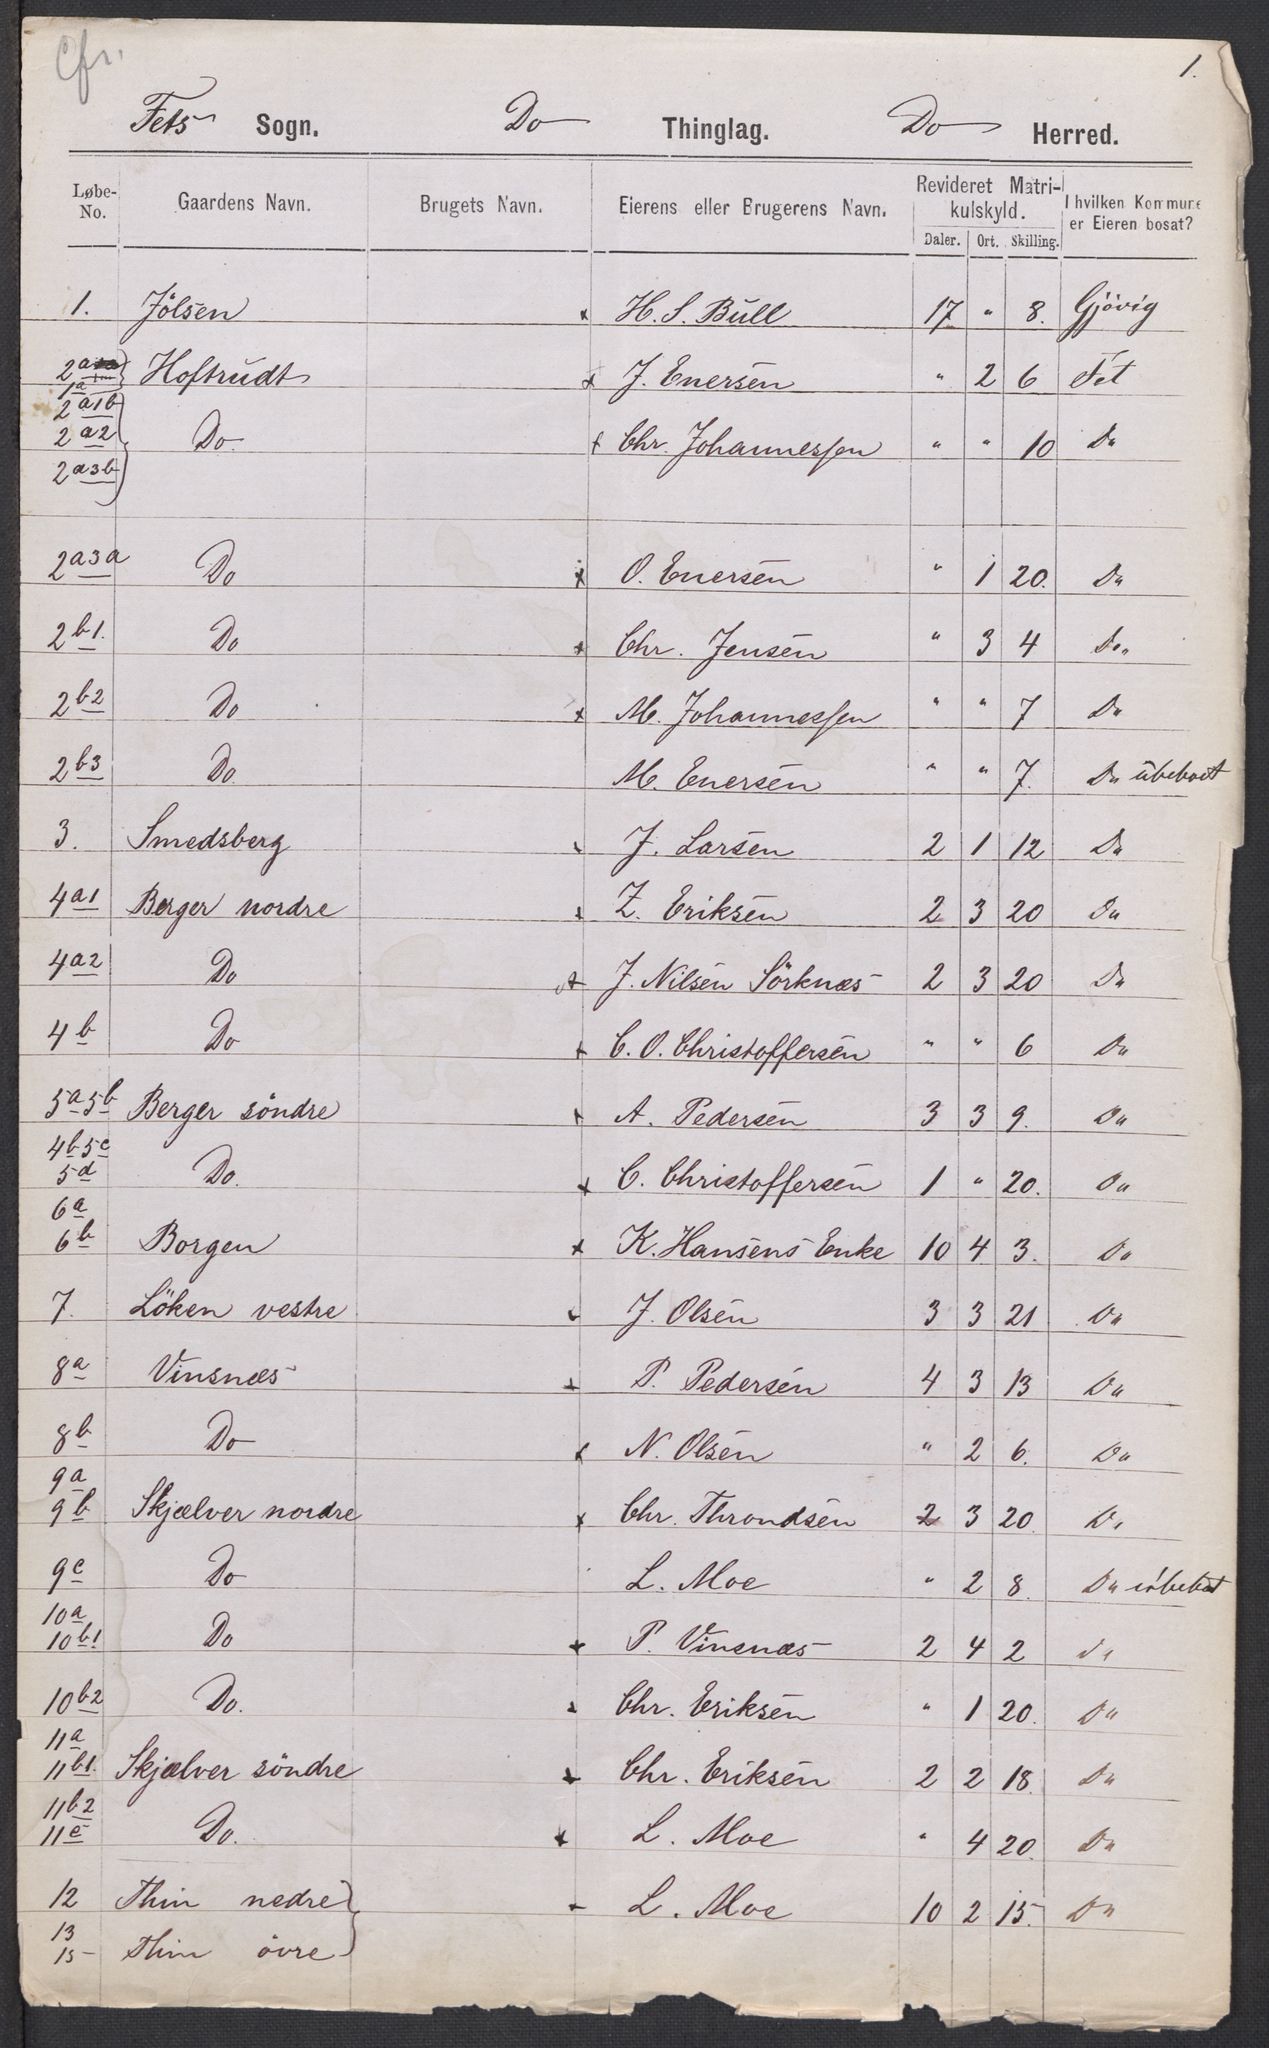 Cfr.
1.
Fets Sogn. Do Thinglag. Do Herred.
Løbe-No. Gaardens Navn. Brugets Navn. Eierens eller Brugerens Navn. Revideret Matrikulskyld. I hvilken Kommune er Eieren bosat?
Daler. Ort. Skilling.
1. Jölsen x H. S. Bull 17 " 8. Gjövig
2a 1a Hoftrudt x J. Enersen " 2 6 Fet
2a1b
2a2 Do x Chr. Johannessen " " 10 Do
2a3b
2a3a Do x O. Enersen " 1 20. Do
2b1. Do x Chr. Jensen " 3 4 Do
2b2 Do x M. Johannessen " " 7 Do
2b3 Do M. Enersen " " 7. Do ubeboet
3. Smedsberg x J. Larsen 2 1 12 Do
4a1 Berger nordre x Z. Eriksen 2 3 20 Do
4a2 Do x J. Nilsen Sörknæs 2 3 20 Do
4b Do x C. O. Christoffersen " " 6 Do
5a 5b Berger söndre x A. Pedersen 3 3 9. Do
4b 5c
5d Do. x C. Christoffersen 1 " 20. Do
6a
6b Borgen x K. Hansens Enke 10 4 3. Do
7. Löken vestre x J. Olsen 3 3 21 Do
8a Vinsnæs x P. Pedersen 4 3 13 Do
8b Do x N. Olsen " 2 6. Do
9a
9b Skjælver nordre x Chr. Throndsen 2 3 20 Do
9c Do L. Moe " 2 8. Do ubeboet
10a
10b1 Do x P. Vinsnæs 2 4 2 Do
10b2 Do. x Chr. Eriksen " 1 20. Do
11a
11b1. Skjælver söndre x Chr. Eriksen 2 2 18. Do
11b2
11c Do. x L. Moe " 4 20. Do
12 Thin nedre x L. Moe 10 2 15. Do
13
15 Thin övre